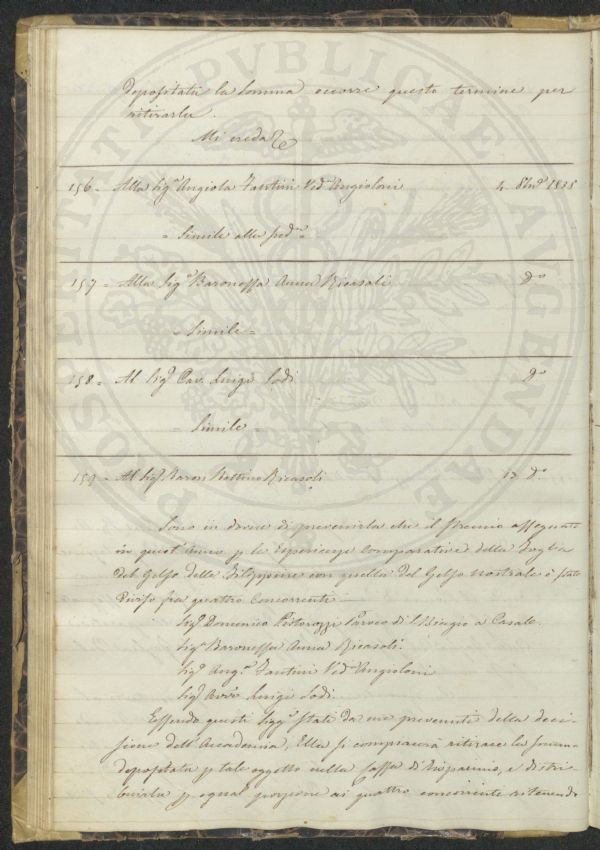 PROSPERITATI PUBLICAE AUGENDAE
depositata la somma occorre questo termine per
ritirarla.
Mi creda
156 = Alla Sigª Angiola Fantini Vedª Angioloni 4. 8bre 1838
= Simile alla preda =
157 = Alla Sigª Baronessa Anna Ricasoli Do
= Simile =
158 = Al Sigr Cav. Luigi Sodi Do
= Simile =
159 = Al Sigr Baron Bettino Ricasoli 13 Do
Sono in dovere di prevenirla che il Premio assegnato
in quest'anno p le Esperienze Comparative della Foglia
del Gelso delle Filippine con quella del Gelso nostrale è stato
diviso fra quattro Concorrenti
Sigr Domenico Pistorozzi Parroco di S. Biagio a Casale.
Sigª Baronessa Anna Ricasoli
Sigª Angª Fantini Vedª Angioloni
Sigr Luigi Sodi
Essendo questi Siggri stati da me prevenuti della deci-
sione dell'Accademia, Ella si compiacerà ritirare la somma
depositata p tale oggetto nella Cassa di Risparmio, e distri-
buirla p egual porzione ai quattro concorrenti ritenendo